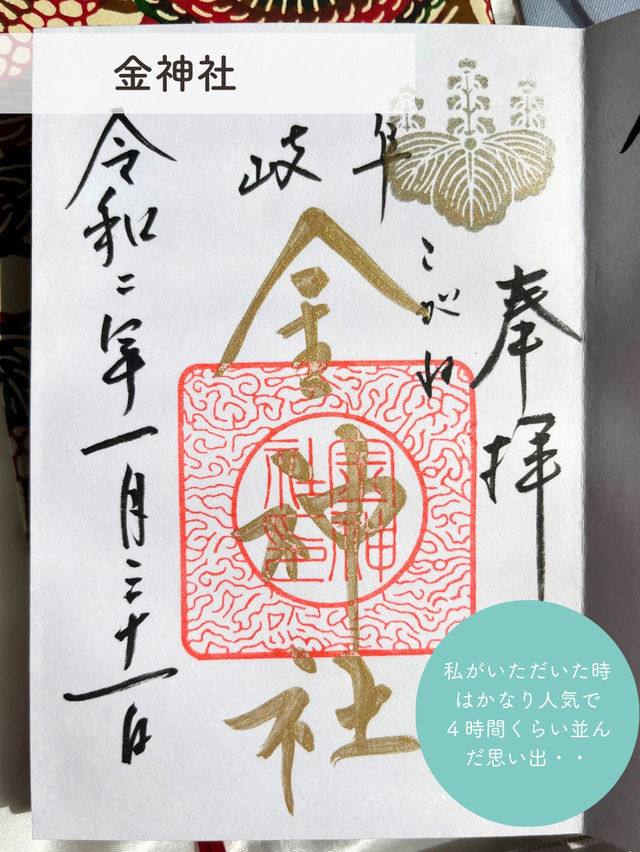 金神社
奉拝
岐阜
こがね
金神社
令和二年一月三十一日
私がいただいた時
はかなり人気で
４時間くらい並ん
だ思い出・・